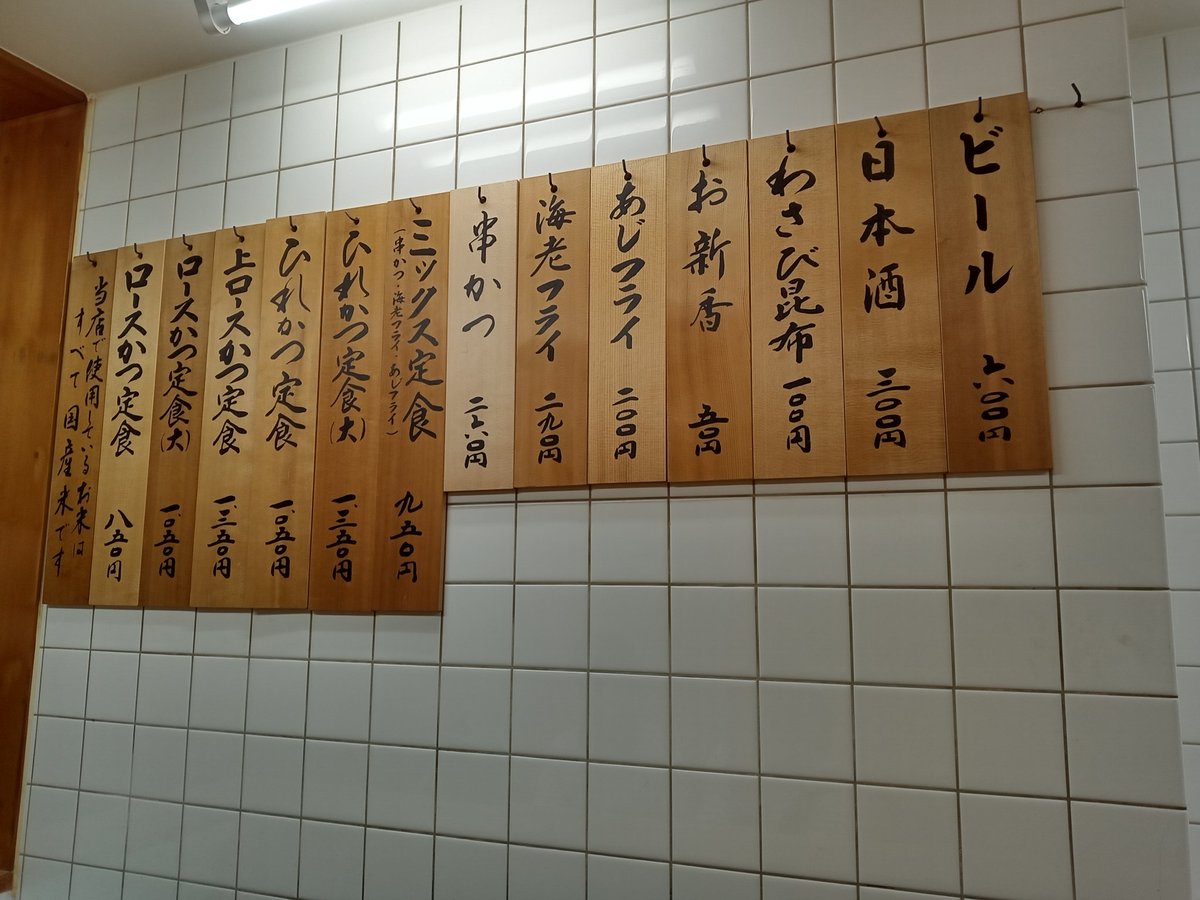 ビール 六〇〇円
日本酒 三〇〇円
わさび昆布 一〇〇円
お新香 五〇円
あじフライ 二〇〇円
海老フライ 二九〇円
串かつ 二六〇円
ミックス定食 九五〇円
(串かつ・海老フライ・あじフライ)
ひれかつ定食(大) 一、三五〇円
ひれかつ定食 一、〇五〇円
上ロースかつ定食 一、三五〇円
ロースかつ定食(大) 一、〇五〇円
ロースかつ定食 八五〇円
当店で使用しているお米は
すべて国産米です